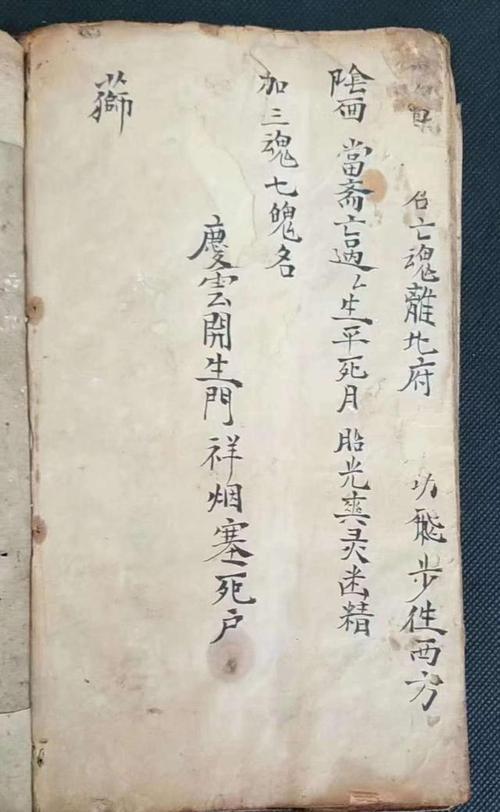 召亡魂離地府 功飛步往西方
陰画 當斋亡過厶生平死月 胎光爽灵幽精
加三魂七魄名
慶雲開生門 祥烟塞死户
獅